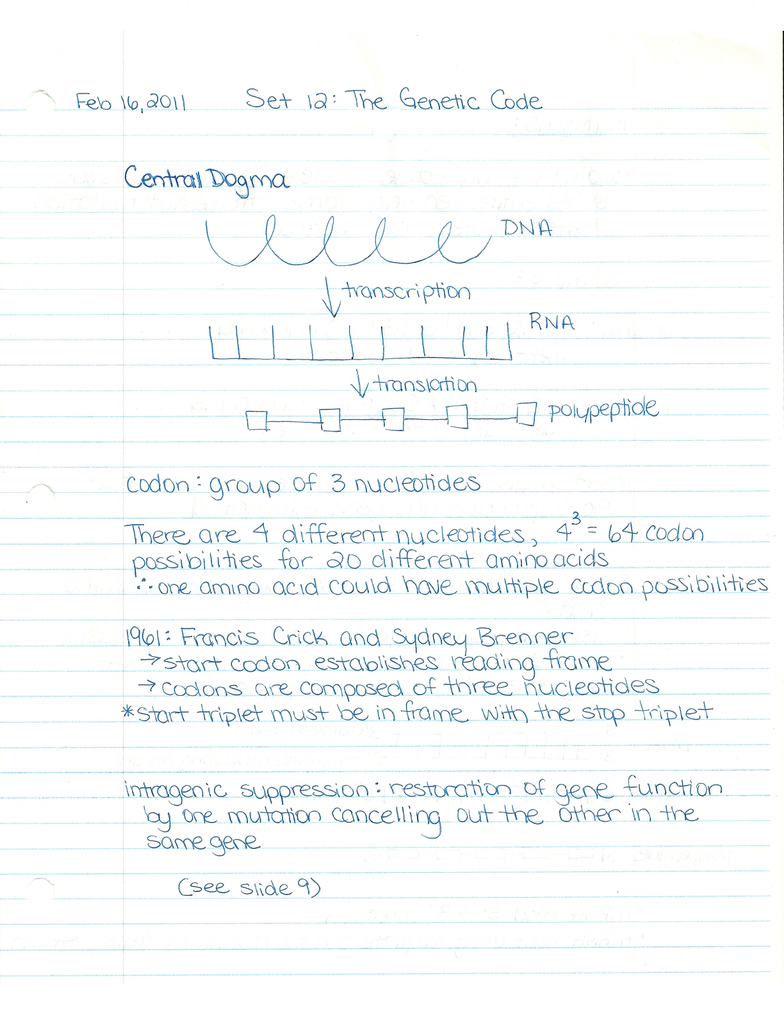 Feb 16, 2011 Set 12: The Genetic Code
Central Dogma
DNA
transcription
RNA
translation
polypeptide
codon: group of 3 nucleotides
There are 4 different nucleotides, 4³ = 64 codon
possibilities for 20 different amino acids
∴ one amino acid could have multiple codon possibilities
1961: Francis Crick and Sydney Brenner
→ start codon establishes reading frame
→ codons are composed of three nucleotides
* Start triplet must be in frame with the stop triplet
intragenic suppression: restoration of gene function
by one mutation cancelling out the other in the
same gene
(see slide 9)